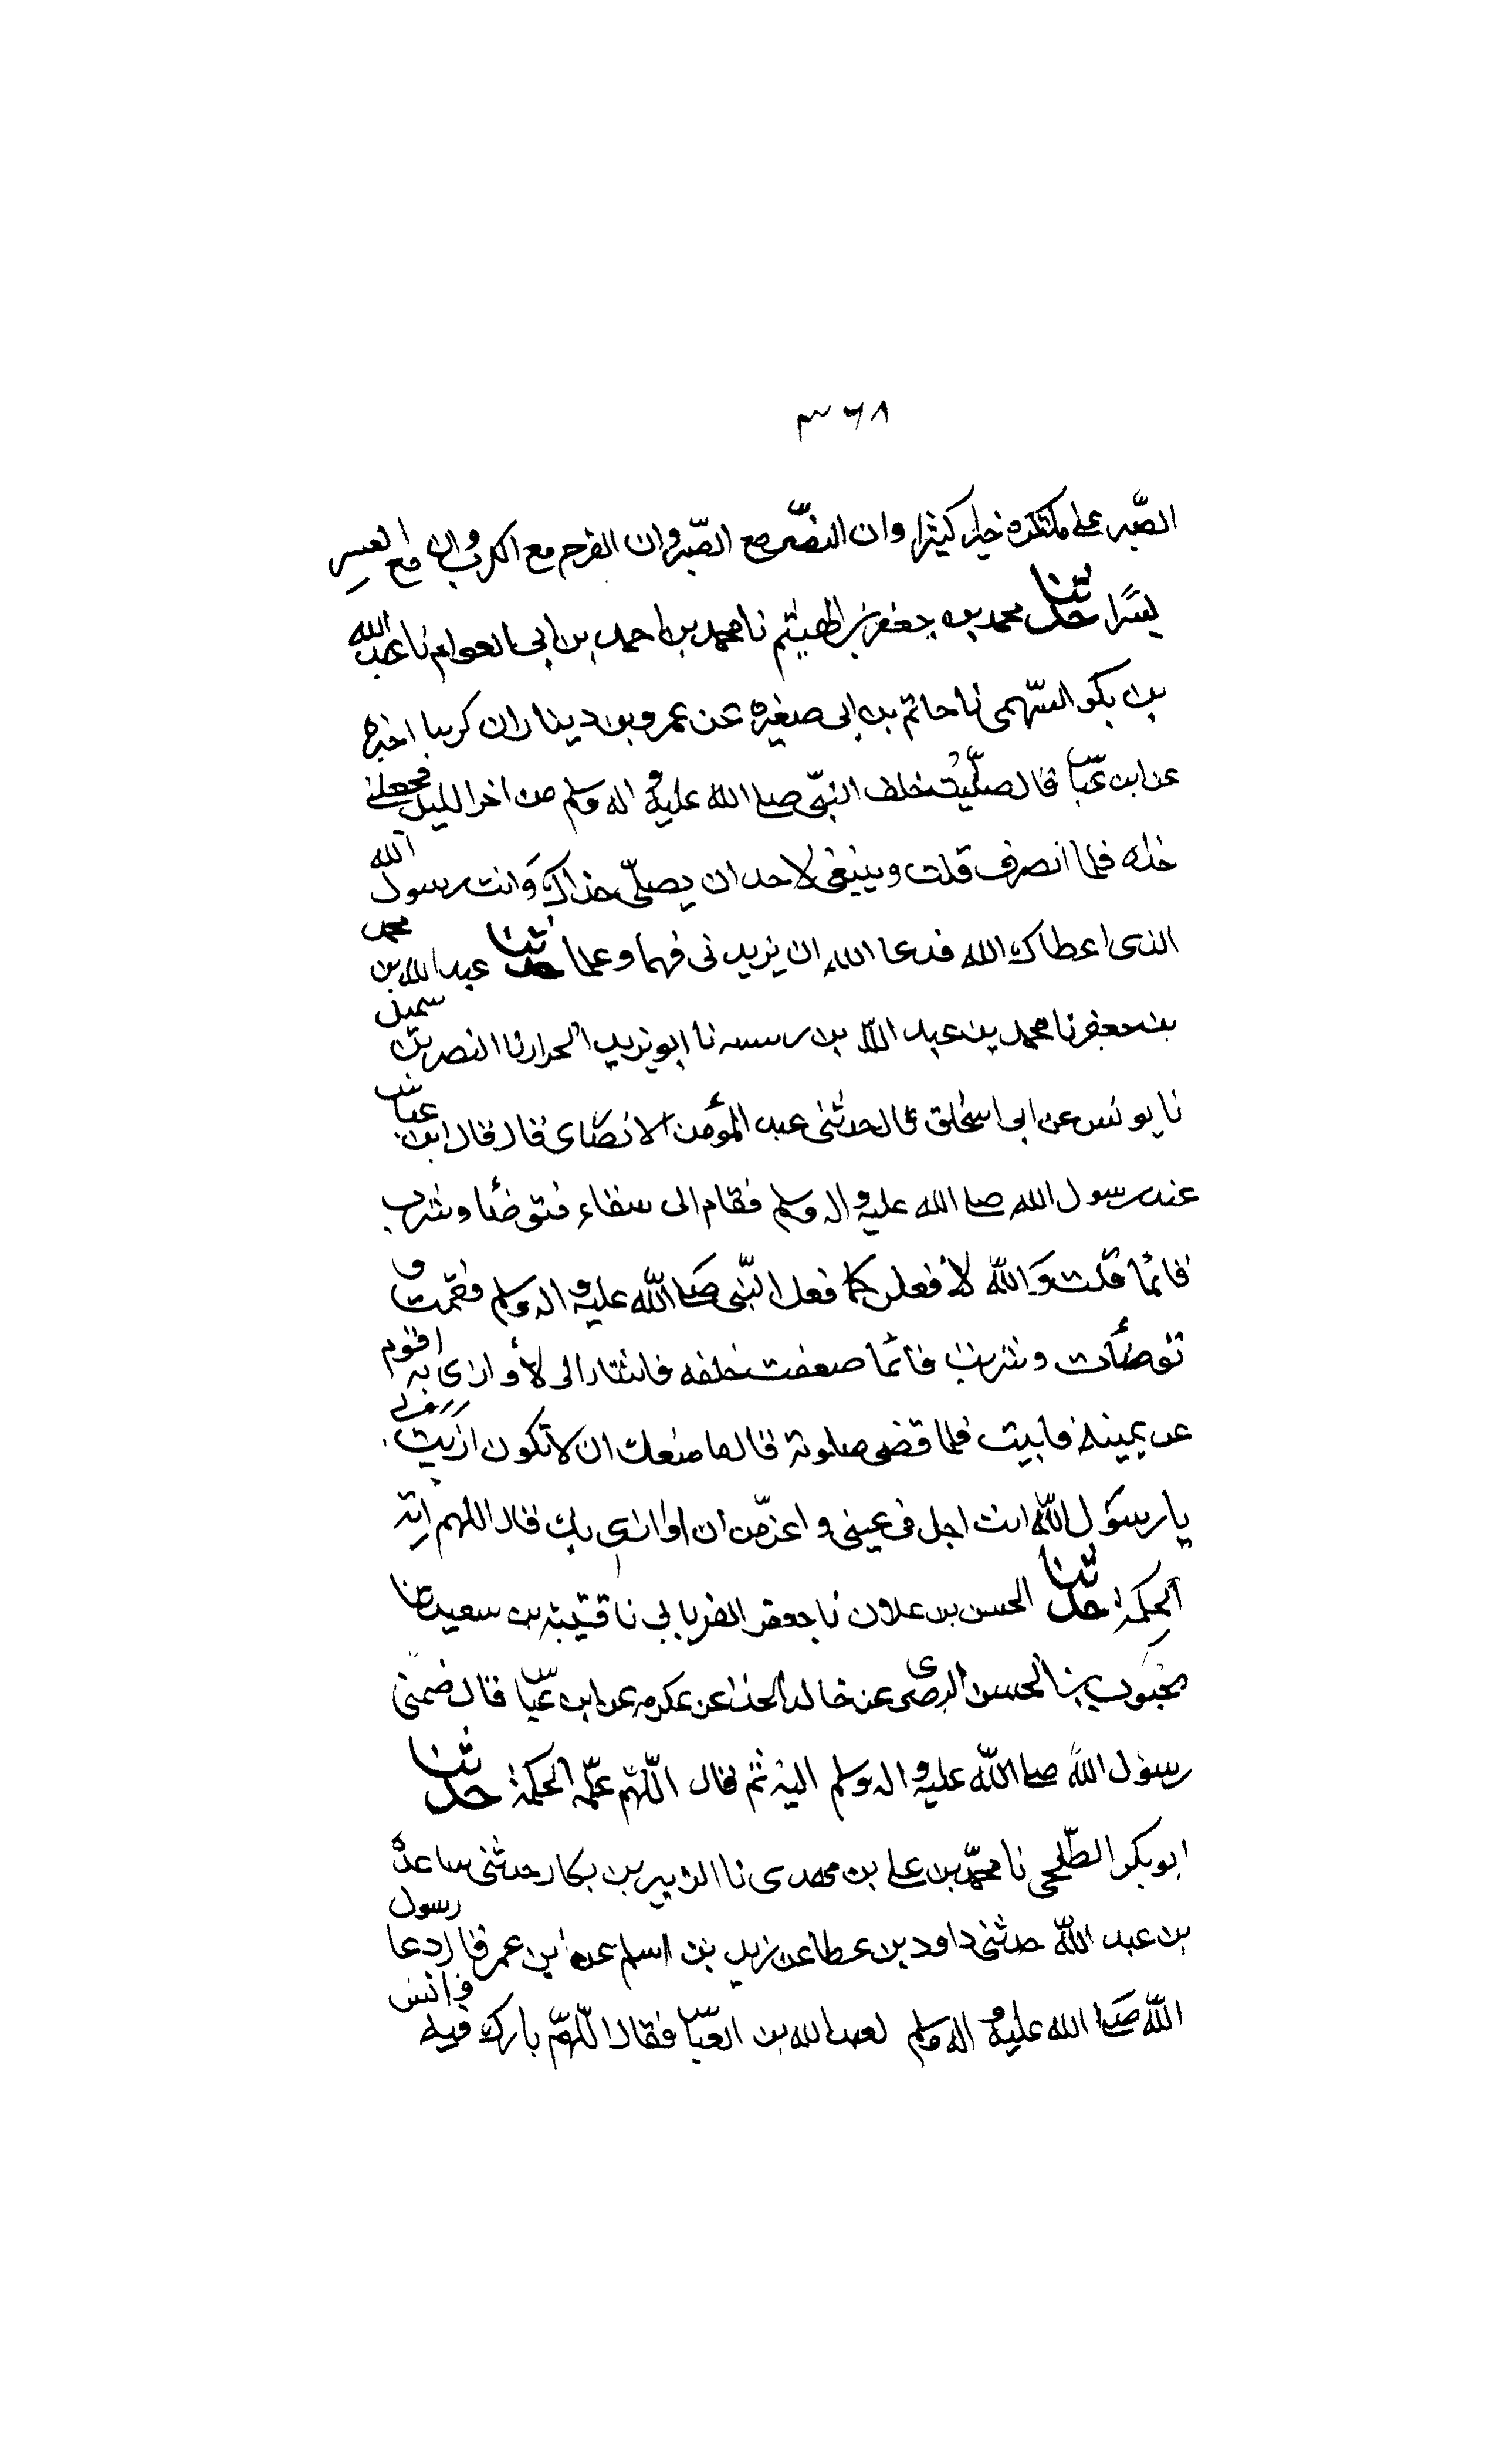 ٣٦٨
الصّبر على ما تكره خيرا كثيرا وان النصر مع الصّبر وان الفرج مع الكرب وان مع العسر
يسًرا حدثنا محمد بن جعفر بن الهيثم نا محمد بن احمد بن ابى العوام نا عبد الله
بن بكر السّهمى نا حاتم بن ابى صغيرة عن عمرو بن دينار ان كريبا اخبره
عن ابن عبّاس قال صلّيت خلف النبّى صلى الله عليه و اله وسلم من اخر الليل فجعلنى
حذاه فلما انصرف قلت وينبغى لاحد ان يصلّى حذاك وَانت رسول الله
الذى اعطاك الله فدعا الله ان يزيدنى فهما وعلما حدثنا عبد الله بن محمد
بن جعفر نا محمد بن عبد الله بن رسته نا ابو يزيد الخراز نا النضر بن شميل
نا يونس عن ابى اسحٰق قال حدثنى عبد المؤمن الانصارى قال قال ابن عباس
عند رسول الله صلى الله عليه و اله وسلم فقام الى سقاء فتوضأ وشرب
قائما قلت وَالله لأفعلن كما فعل النّبى صَلى اللّه عليه و اله وسلم فقمت و
توضأت وشربت قائما صففت خلفه فاشار الى لأوازى به اقوم
عن يمينه فابيت فلما قضى صلوته قال ما منعك ان لا تكون ازيت
يا رسول اللّه انت اجل فى عينى و اعزّ من ان اوازى بك قال اللهم اته
الحكمة حدثنا الحسن بن علان نا جعفر الفريابي نا قتيبة بن سعيد نا
محبوب بن الحسن البصرى عن خالد الحذا عن عكرمه عن ابن عبّاس قال ضمنى
رسول الله صلى اللّه عليه و اله وسلم اليه ثم قال اللّهم علّمه الحكمة حدثنا
ابو بكر الطّلحى نا محمّد بن على بن مهدى نا الزبير بن بكار حدثنى ساعدة
بن عبد اللّه حدثنى داود بن عطا عن زيد بن اسلم عن ابن عمر قال دعا رسول
اللّه صَلى الله عليه و اله وسلم لعبد الله بن العبّاس فقال اللّهمّ بارك فيه وانشر